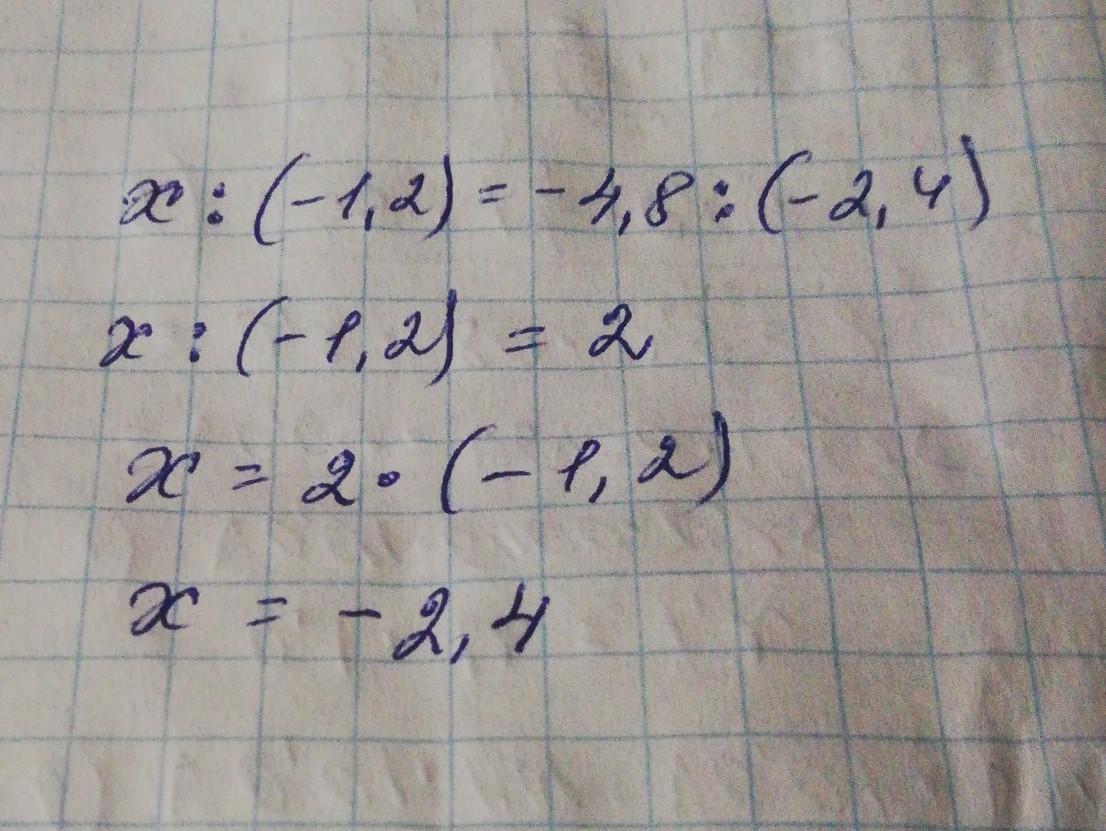 x : (-1,2) = -4,8 : (-2,4)
x : (-1,2) = 2
x = 2 · (-1,2)
x = -2,4